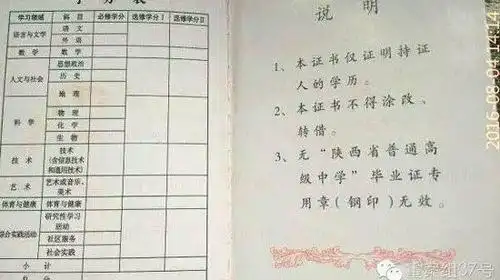 学习领域 科目 必修学分 选修学分Ⅰ 选修学分Ⅱ
语言与文学 语文
外语
数学 数学
人文与社会 思想政治
历史
地理
科学 物理
化学
生物
技术 技术
(含信息技术
和通用技术)
艺术 艺术或音乐、
美术
体育与健康 体育与健康
综合实践活动 研究性学习
活动
社区服务
社会实践
小计
说明
1、本证书仅证明持证
人的学历。
2、本证书不得涂改、
转借。
3、无“陕西省普通高
级中学”毕业证专
用章(钢印)无效。